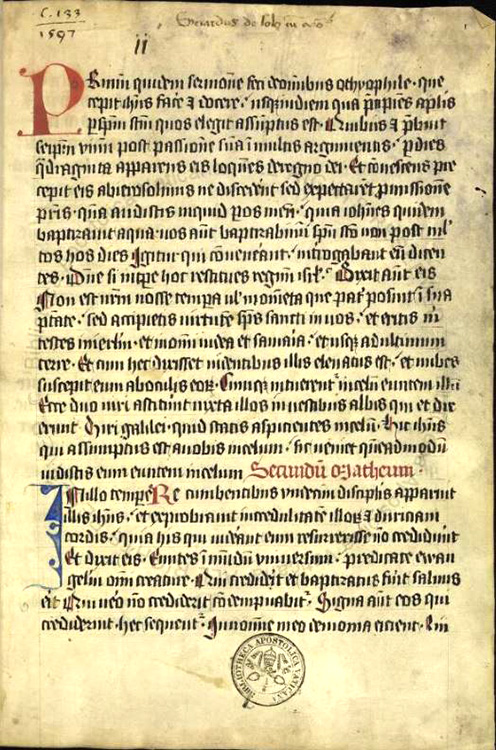 C. 133
1597
Gerardus de
ii
PRimū quidem sermonē feci deomnibus othyophile · que
cepit ihūs facē ⁊ docere · usqꝫ indiem qua p̄cipiēs apl̄is
p sp̄m sc̄m quos elegit assūptus est · Quibus ⁊ p̄buit
seip̄m viuū post passionē suā ī multis argumentis · p dies
q̄draginta apparens eis loquēs deregno dei · Et cōuescens pre
cepit eis abierosolimis ne discederēt sed expectarēt p̄missionē
pr̄is · quā audistis inquid pos meū · quia ioh̄nes quidem
baptizauit aqua · uos aūt baptizabimī sp̄u sc̄o non post ml̄
tos hos dies Igitur qui cōueneāt · īt̄rogabant eū dicen
tes · Dn̄e si īt̄pe hoc restitues regnū isrl̄ · Dixit aūt eis
Non est ur̄m nosse tempa ul̄ mom̄eta que pat̄ posuit ī sua
p̄tate · sed accipietis uirtutē sp̄s sancti in uos · et eritis m̄
testes inierl̄m · et īomni iudea et samaia · et usqꝫ adultimum
terre · Et cum hec dixisset uidentibus illis eleuatus est · et nubes
suscepit eum aboculis eoꝝ · Cumqꝫ intuerent̄ incelū euntem illū
Ecce duo uiri astiterūt iuxta illos inuestibus albis qui et dix
erunt Uiri galilei · quid statis aspicientes incelū · hic ihūs
qui assumptus est auobis incelum · sic ueniet quēadmodū
uidistis eum euntem incelum Secundū Matheum ·
Inillo tempēRe cumbentibus undecim discipl̄is apparuit
illis ihūs · et exprobrauit incredulitatē illoꝝ ⁊ duriciam
cordis · quia his qui uidēant eum resurrexisse nō crediderūt
Et dixit eis · Euntes ī mūdū vniuersum · predicate ewan
gelium om̄i creature · Qui crediderit et baptizatus fūit saluus
erit Qui uēo nō crediderit cōdempnabit̄ · Signa aūt eos qui
crediderint · hec sequent̄ · In nomine meo demonia eicient · Lin
BIBLIOTHECA APOSTOLICA VATICANA